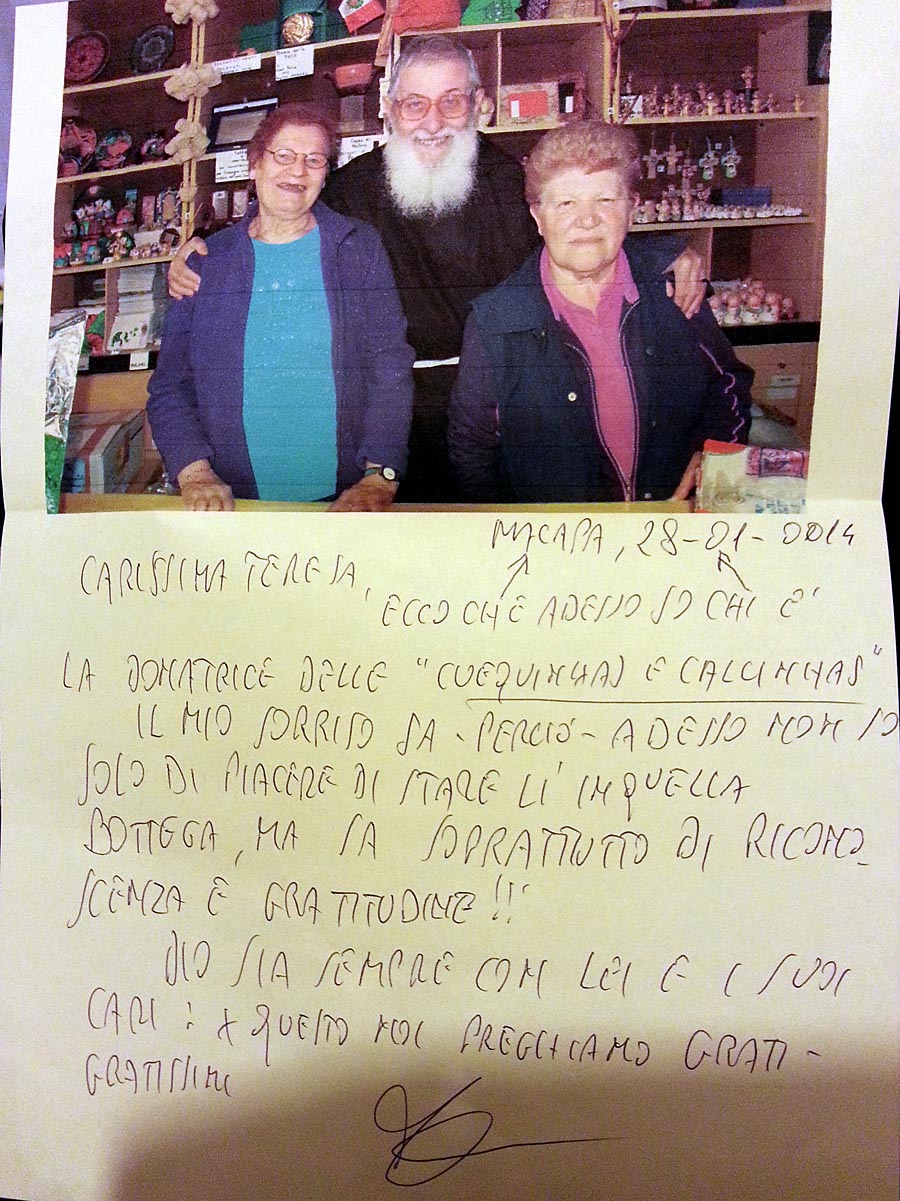 MACAPA, 28-01-2014
CARISSIMA TERESA,
ECCO CHE ADESSO SO CHI E'
LA DONATRICE DELLE "CUEQUINHAS E CALCINHAS"
IL MIO SORRISO SA - PERCIÒ - ADESSO NON SO
SOLO DI PIACERE DI STARE LI' IN QUELLA
BOTTEGA, MA SA SOPRATTUTTO DI RICONO-
SCENZA E GRATITUDINE!!!
DIO SIA SEMPRE CON LEI E I SUOI
CARI: X QUESTO NOI PREGHIAMO GRATI-
GRATISSIMI